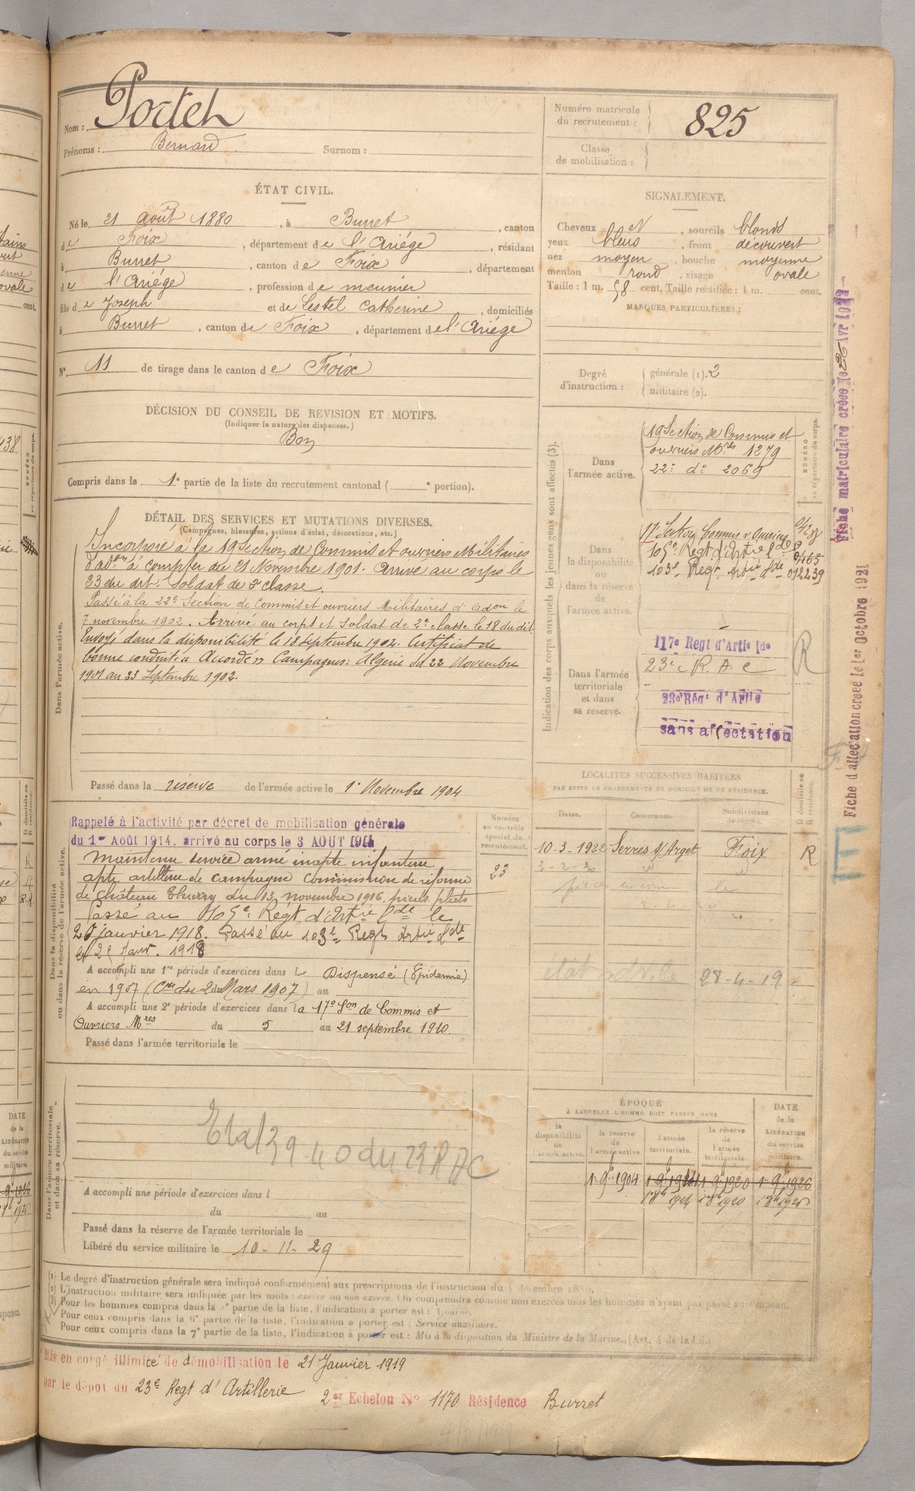 Nom : Portet
Prénoms : Bernard Surnom :
Numéro matricule du recrutement : 825
Classe de mobilisation :
ÉTAT CIVIL.
Né le 21 août 1880, à Burret, canton
de Foix, département de l'Ariége, résidant
à Burret, canton de Foix, département
de l'Ariége, profession de meunier
fils de Joseph et de Lestel Catherine, domiciliés
à Burret, canton de Foix, département de l'Ariége
N° 11 de tirage dans le canton de Foix
DÉCISION DU CONSEIL DE REVISION ET MOTIFS.
(Indiquer la nature des dispenses.)
Bon
Compris dans la 1e partie de la liste du recrutement cantonal ( e portion).
SIGNALEMENT.
Cheveux N, sourcils blonds
yeux bleus, front découvert
nez moyen, bouche moyenne
menton rond, visage ovale
Taille : 1 m. 58 cent. Taille rectifiée : 1 m. cent.
MARQUES PARTICULIÈRES :
Degré d'instruction : générale (1). 2
militaire (2).
DÉTAIL DES SERVICES ET MUTATIONS DIVERSES.
(Campagnes, blessures, actions d'éclat, décorations, etc.)
Dans l'armée active.
Incorporé à la 19e Section de Commis et ouvriers Militaires
à compter du 21 Novembre 1901. Arrivé au corps le
23 du dit. Soldat de 2e classe.
Passé à la 22e Section de Commis et ouvriers Militaires le
7 novembre 1902. Arrivé au corps et soldat de 2e classe le 18 du dit
Envoyé dans la disponibilité le 18 septembre 1902. Certificat de
bonne conduite Accordé. Campagnes: Algérie du 22 Novembre
1901 au 23 Septembre 1902.
Passé dans la réserve de l'armée active le 1er Novembre 1904
Indication des corps auxquels les jeunes gens sont affectés (3).
Dans l'armée active.
19 Section de Commis et
ouvriers Mres 1279
22e do 2069
Dans la disponibilité ou dans la réserve de l'armée active.
17 Section Commis & Ouvriers
105e Régt d'Artie lde
103e Regt Artie lde 012239
Dans l'armée territoriale et dans sa réserve.
117e Régt d'Artie lde
23e R A C
23e Régt d'Artie
sans affectation
R
Fiche matriculaire créée le 26 Avr 1922
Fiche d'affectation créée le 1er Octobre 1921
LOCALITÉS SUCCESSIVES HABITÉES
PAR SUITE DE CHANGEMENTS DE DOMICILE OU DE RÉSIDENCE.
Dates. Communes. Subdivisions de région.
10-3-1922 Serres s/Arget Foix R
28-4-19
Dans la disponibilité ou dans la réserve de l'armée active.
Numéro au contrôle spécial du recrutement.
23
Rappelé à l'activité par décret de mobilisation générale
du 1er Août 1914. arrivé au corps le 3 AOUT 1914
Maintenu service armé inapte infanterie
apte artillerie de campagne Commission de réforme
de Château Thierry du 13 novembre 1916, pieds plats
Passé au 105e Regt d'Artie lde le
20 janvier 1918. Passé au 103e Regt Artie lde
le 25 Janv. 1918
A accompli une 1re période d'exercices dans l Dispensé (Epidémie)
en 1907 (Cre du 2 Mars 1907) au
A accompli une 2e période d'exercices dans la 17e Son de Commis et
Ouvriers Mres du 5 au 21 septembre 1910.
Passé dans l'armée territoriale le
Dans l'armée territoriale et dans sa réserve.
Etat 39-40 du 23 RAC
A accompli une période d'exercices dans l
du au
Passé dans la réserve de l'armée territoriale le
Libéré du service militaire le 10-11-29
ÉPOQUE
À LAQUELLE L'HOMME DOIT PASSER DANS
la disponibilité de l'armée active.
la réserve de l'armée active.
l'armée territoriale.
la réserve de l'armée territoriale.
DATE de la LIBÉRATION du service militaire.
1 9bre 1904 1 9bre 1914 1 9bre 1920 1 9bre 1926
(1) Le degré d'instruction générale sera indiqué conformément aux prescriptions de l'instruction du décembre
(2) L'instruction militaire sera indiquée par les mots : exercé ou non exercé. On comprendra comme non exercés tous les hommes n'ayant pas passé au drapeau.
(3) Pour les hommes compris dans la partie de la liste, l'indication à porter est :
Pour ceux compris dans la 6e partie de la liste, l'indication à porter est : Service auxiliaire.
Pour ceux compris dans la 7e partie de la liste, l'indication à porter est : Mis à la disposition du Ministre de la Marine.
Mis en congé illimité de démobilisation le 21 Janvier 1919
par le dépôt du 23e Regt d'Artillerie
2er Echelon N° 1170 Résidence Burret